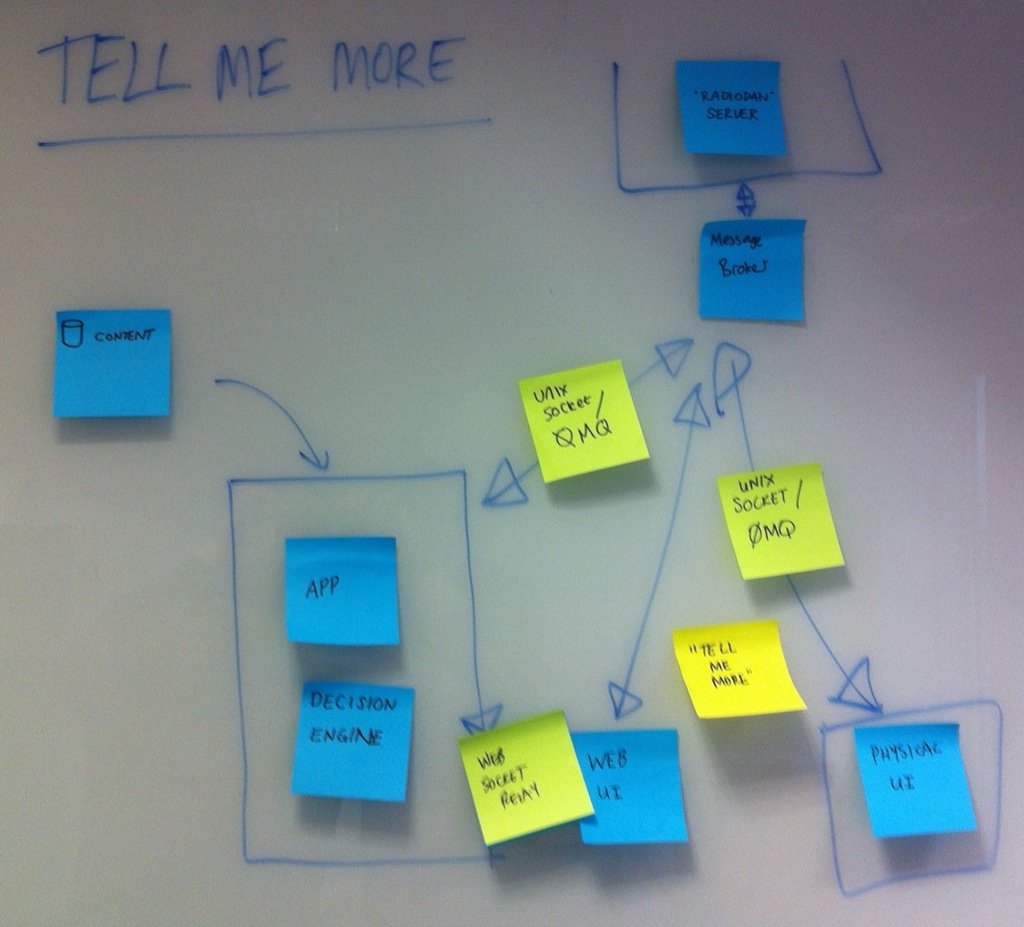 TELL ME MORE
"RADIODAN"
SERVER
Message
Broker
CONTENT
UNIX
Socket/
ØMQ
UNIX
SOCKET/
ØMQ
APP
"TELL
ME
MORE"
DECISION
ENGINE
WEB
SOCKET
RELAY
WEB
UI
PHYSICAL
UI